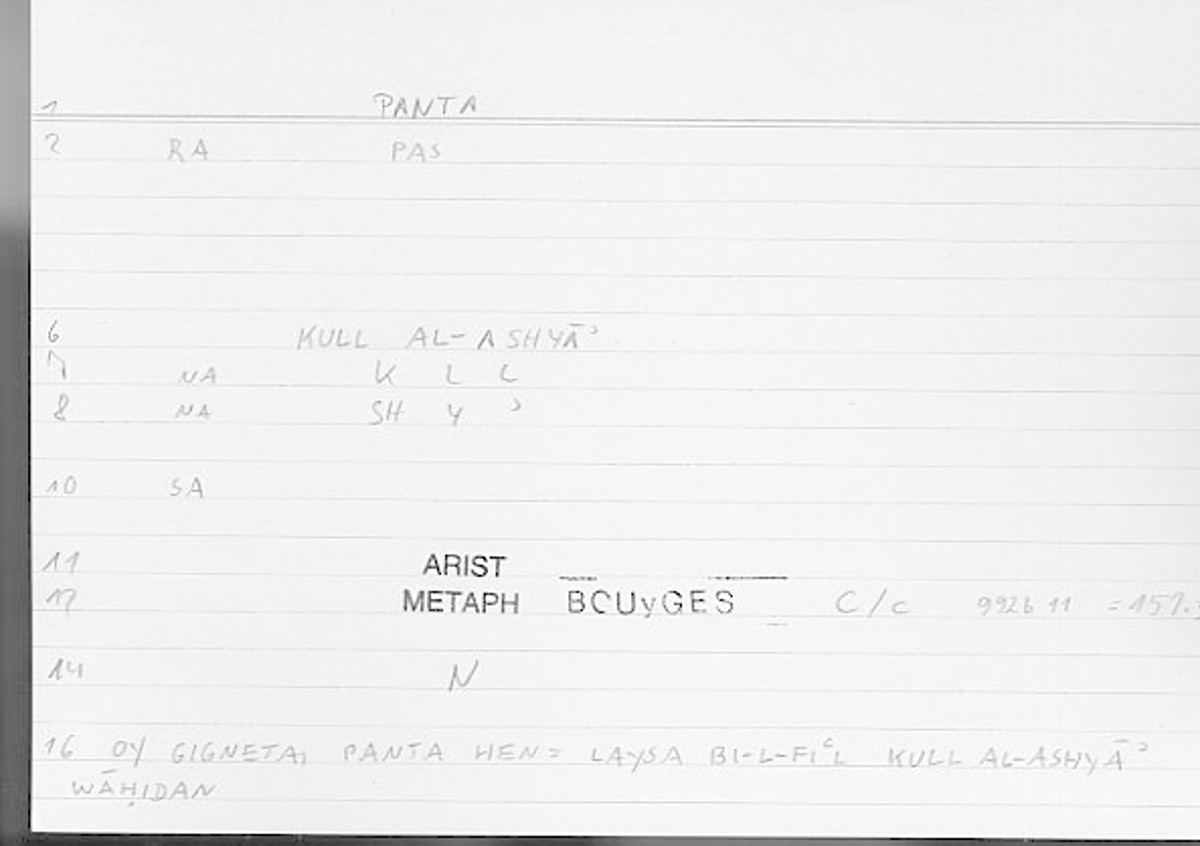 1 PANTA
2 RA PAS
6 KULL AL-ASHYĀʾ
7 NA K L L
8 NA SH Y ʾ
10 SA
11 ARIST
12 METAPH BOUyGES C/c 992b 11 = 157.
14 N
16 OY GIGNETAI PANTA HEN = LAYSA BI-L-FIʿL KULL AL-ASHYĀʾ
WĀḤIDAN